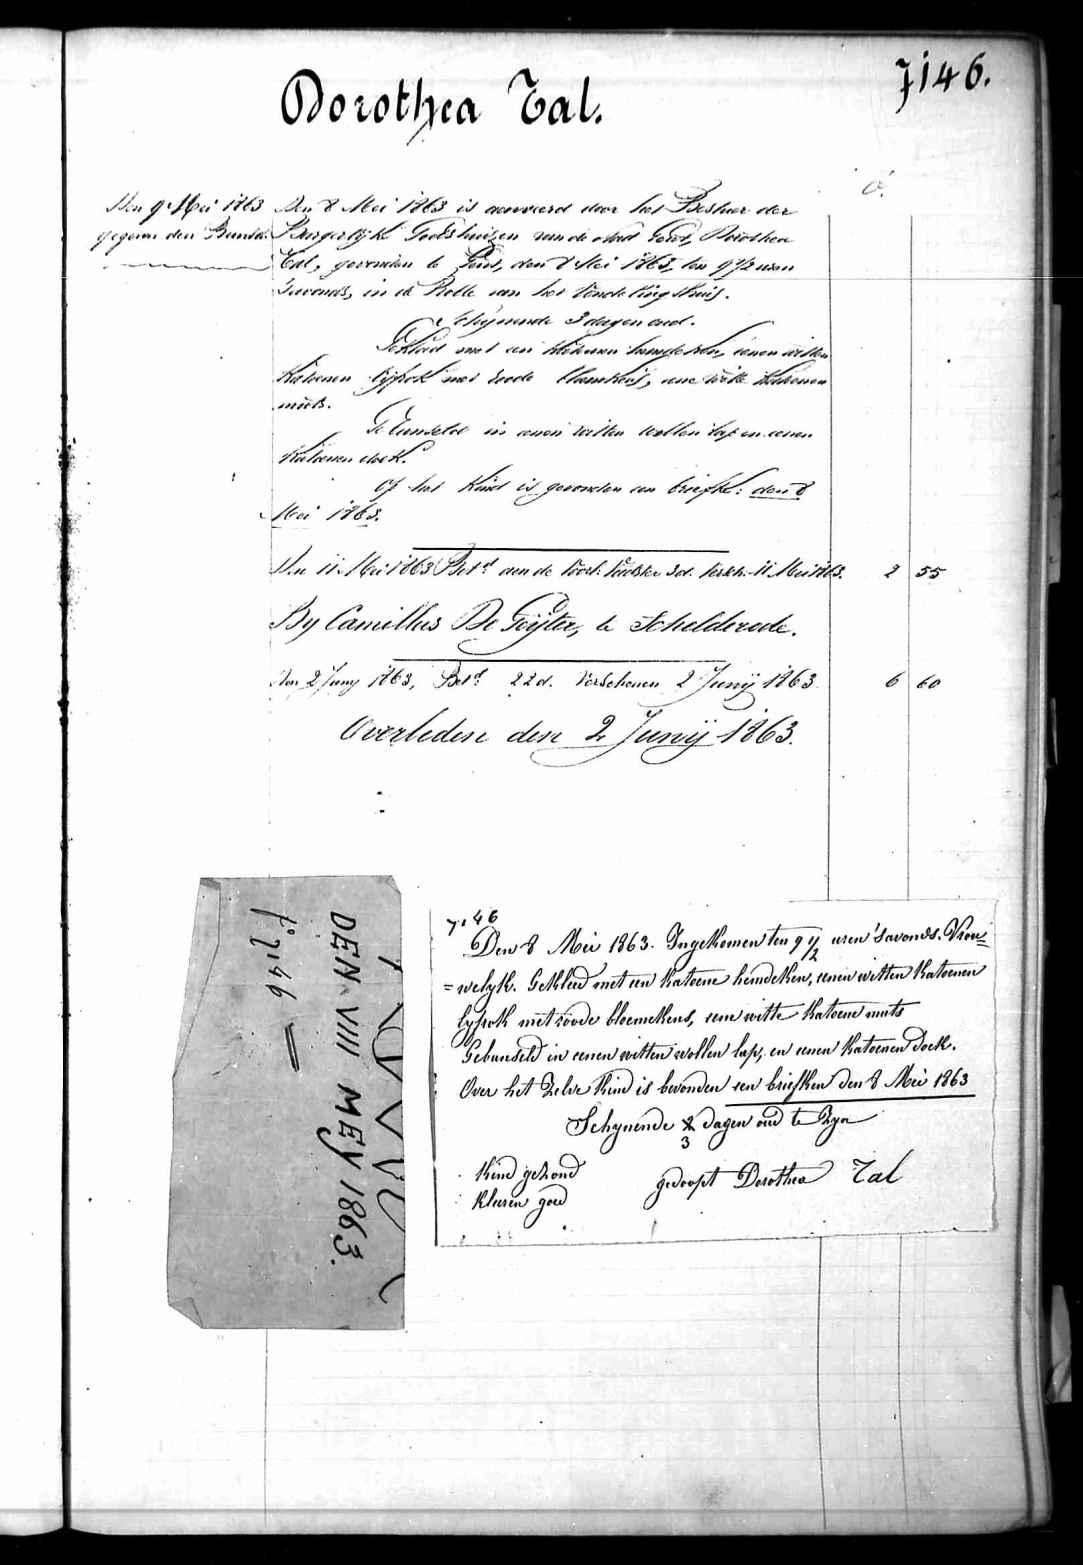 7146.
Dorothea Tal.
Den 9 Mei 1863
gegeven den Bunsel.
Den 8 Mei 1863 is aanveerd door het Bestuer der
Burgerlijke Godshuizen van de stad Gend, Dorothea
Tal, gevonden te Gend, den 8 Mei 1863, ten 9 1/2 uren
'savonds, in de Rolle van het Vondelingshuis.
Schijnende 3 dagen oud.
Gekleed met een katoenen hemdeken, eenen witten
katoenen lijfrok met roode bloemkens, eene witte katoenen
muts.
Gebunseld in eenen witten wollen lap en eenen
katoenen doek.
Op het kind is gevonden een briefke: den 8
Mei 1863.
Den 11 Mei 1863 Bet.d aan de 3d. 11 Mei 1863. 2 55
By Camillus De Guyter, te Schelderode.
Den 2 Juny 1863, Bet.d 22d. verschenen 2 Junij 1863 6 60
Overleden den 2 Junij 1863.
DEN VIII MEY 1863.
f° 7146
7146
Den 8 Mei 1863. Ingekomen ten 9 1/2 uren 'savonds. Vrou=
=welyk. Gekleed met een katoene hemdeken, eenen witten katoenen
lyfrok met roode bloemekens, eene witte katoene muts
Gebunseld in eenen witten wollen lap, en eenen katoenen doek.
Over het zelve kind is bevonden een briefken den 8 Mei 1863
Schynende 3 dagen oud te zyn
kind gezond
kleeren goed
gedoopt Dorothea Tal